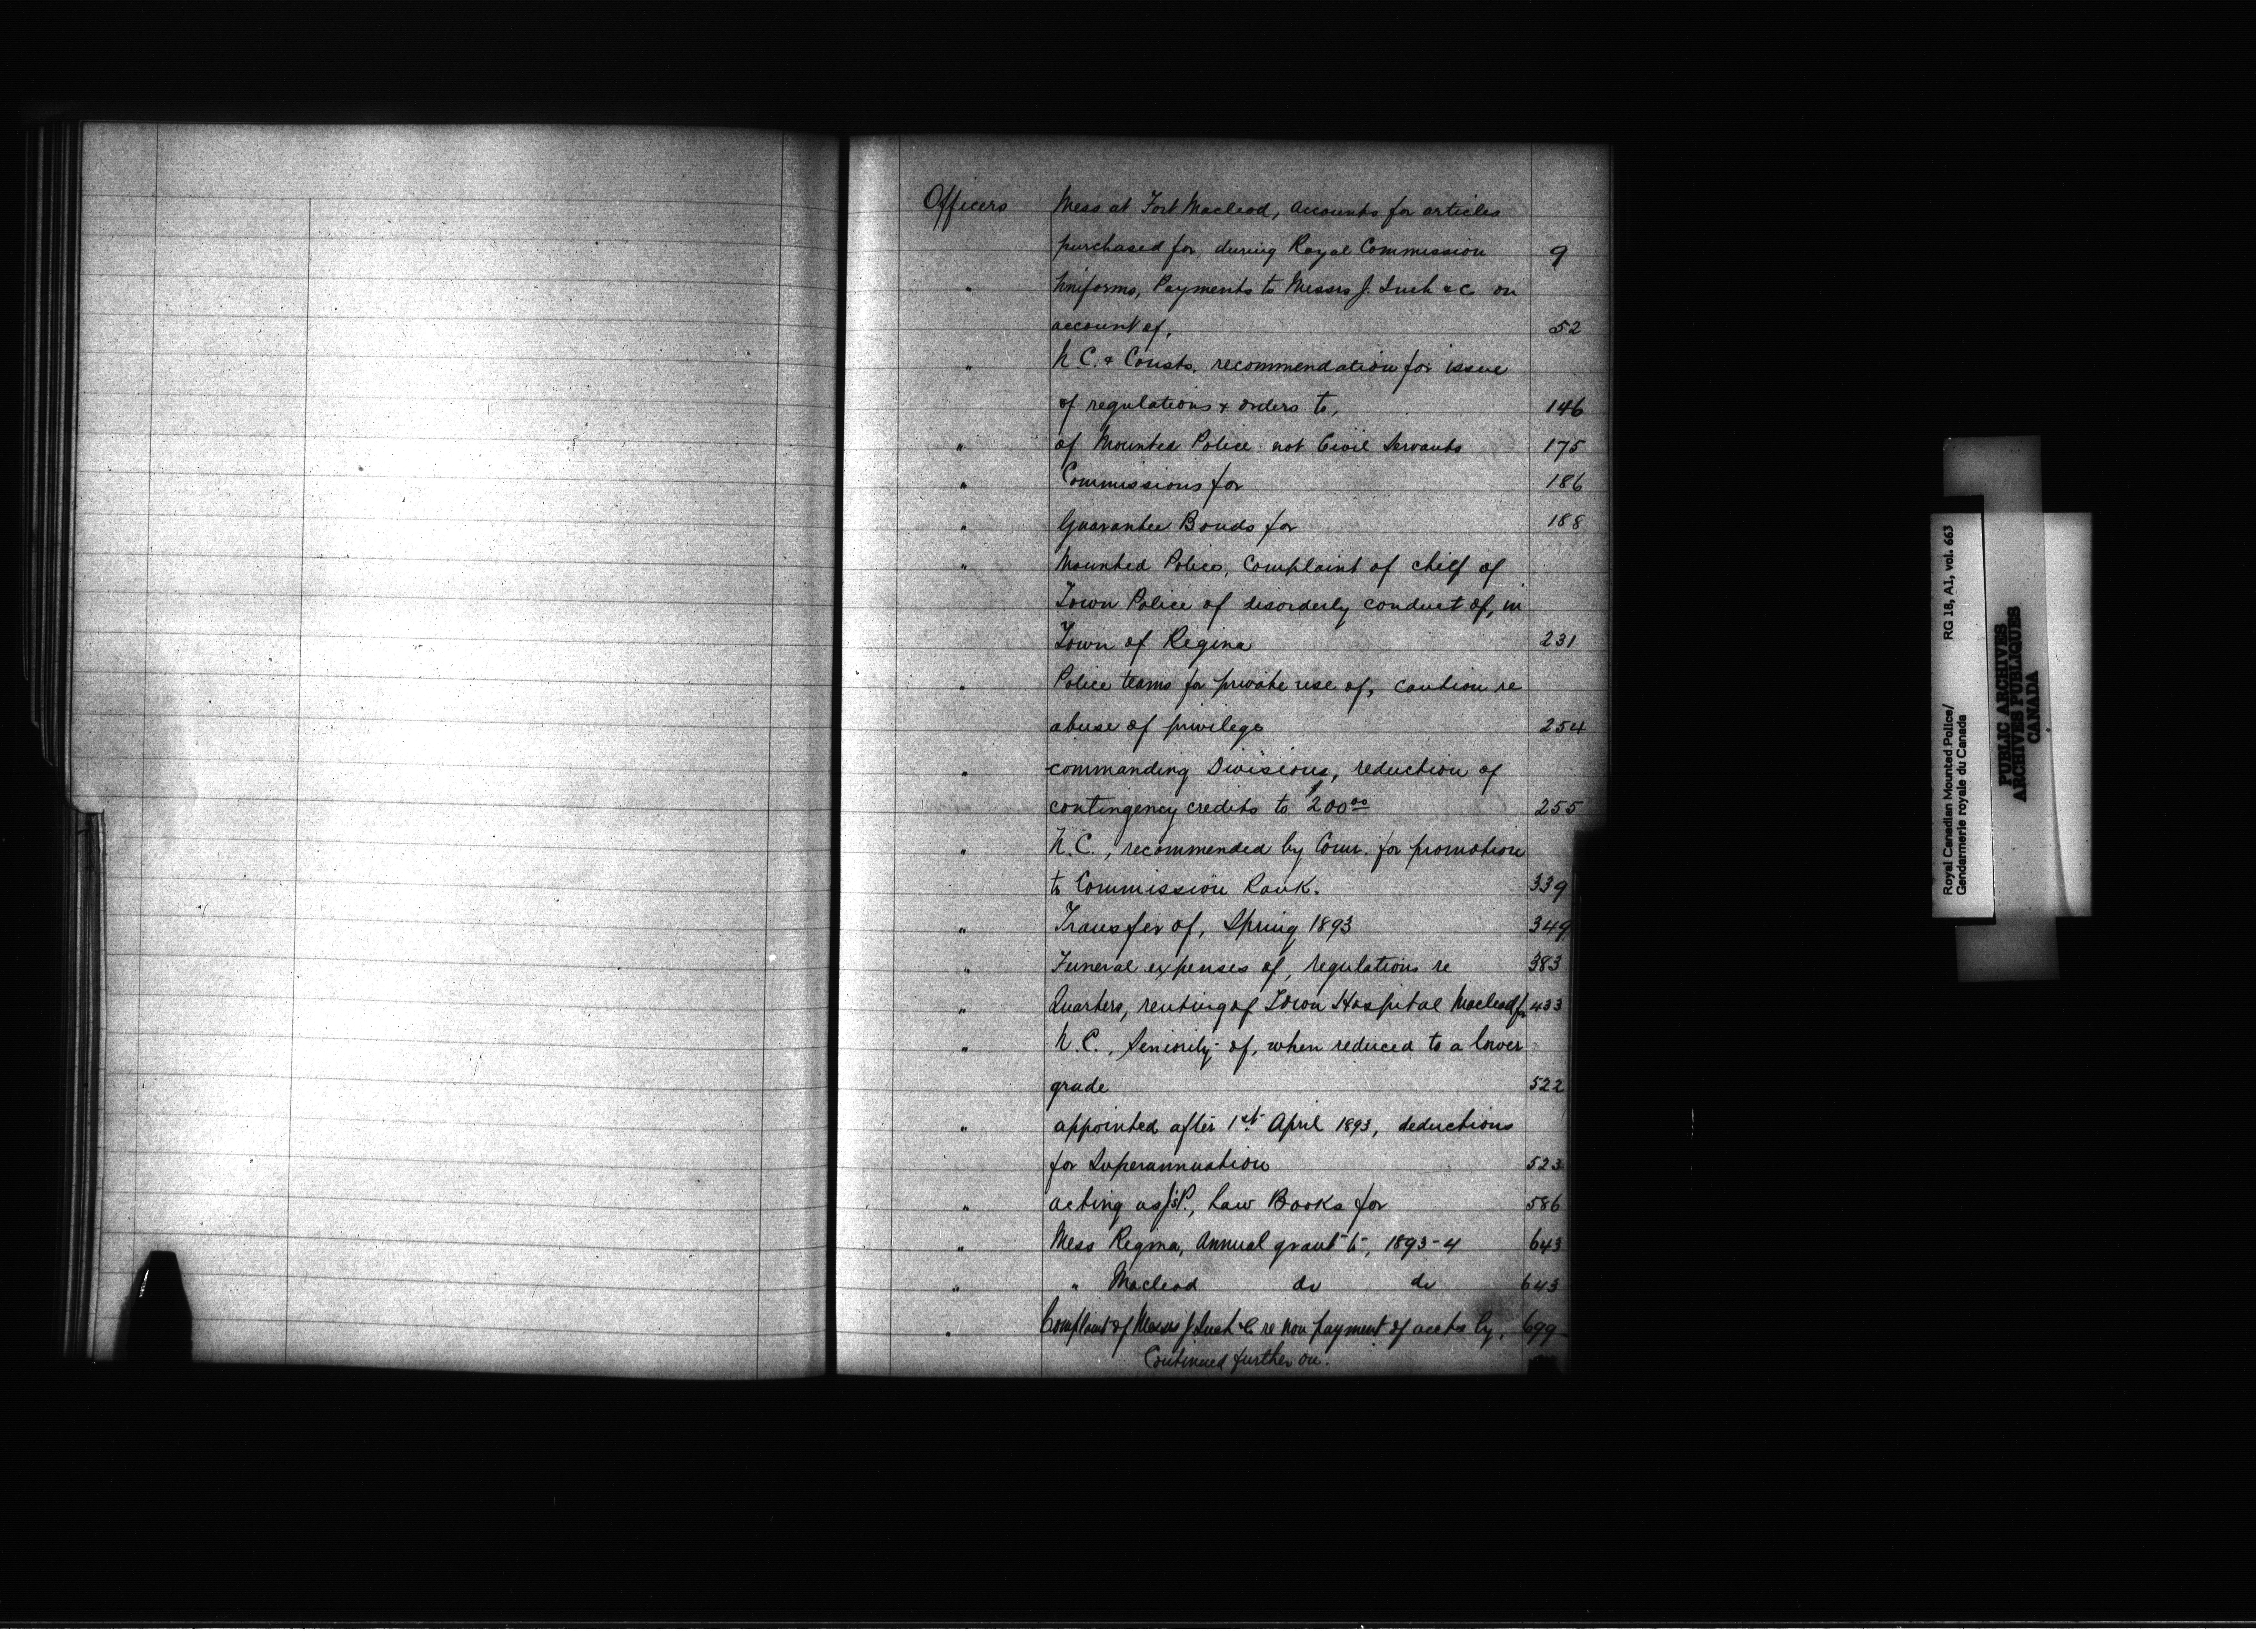 Officers Mess at Fort Macleod, Accounts for articles
purchased for, during Royal Commission 9
" Uniforms, Payments to Messrs J. & Co on
account of, 52
" N.C. & Consts. recommendation for issue
of regulations & orders to, 146
" of Mounted Police not Civil Servants 175
" Commissions for 186
" Guarantee Bonds for 188
" Mounted Police, Complaint of chief of
Town Police of disorderly conduct of, in
Town of Regina 231
" Police teams for private use of, caution re
abuse of privilege 254
" commanding Divisions, reduction of
contingency credits to $200.00 255
" N.C., recommended by Comr. for promotion
to Commission Rank. 339
" Transfer of, Spring 1893 349
" Funeral expenses of, regulations re 383
" Quarters, renting of Town Hospital Macleod for 433
" N.C., Seniority of, when reduced to a lower
grade 522
" appointed after 1st April 1893, deductions
for Superannuation 523
" acting as J.P., Law Books for 586
" Mess Regina, Annual grant to, 1893-4 643
" " Macleod do do 643
" Complaint of Messrs J. & Co re non payment of accts by, 699
Continued further on.
Royal Canadian Mounted Police/ RG 18, A1, vol. 663
Gendarmerie royale du Canada
PUBLIC ARCHIVES
ARCHIVES PUBLIQUES
CANADA